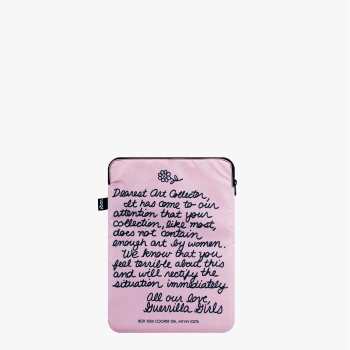 Dearest Art Collector,
It has come to our
attention that your
collection, like most,
does not contain
enough art by women.
We know that you
feel terrible about this
and will rectify the
situation immediately.
All our love,
Guerrilla Girls
BOX 1056 COOPER STA., NY NY 10276
LOQI